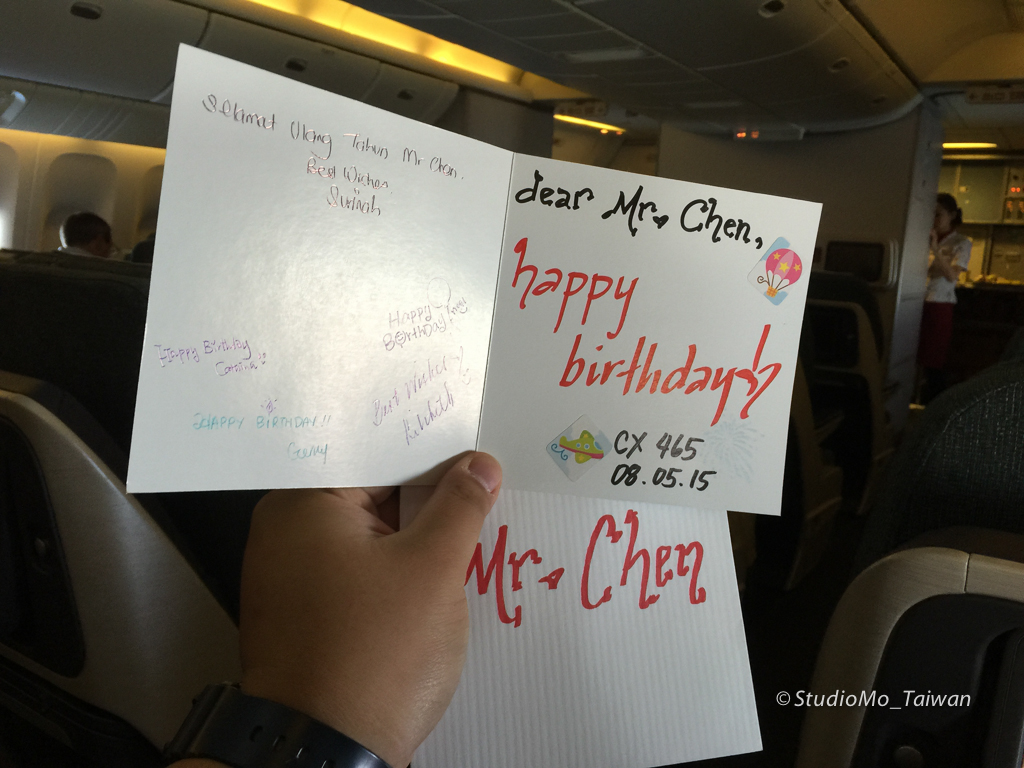 Selamat Ulang Tahun Mr Chen.
Best Wishes
Happy
Birthday
Happy Birthday
Best Wishes
HAPPY BIRTHDAY!!
dear Mr. Chen,
happy
birthday
CX 465
08.05.15
Mr. Chen
©StudioMo_Taiwan